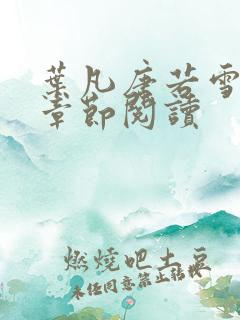 葉凡唐若雪
章節閱讀
燃燒吧土豆
未经同意禁止转载